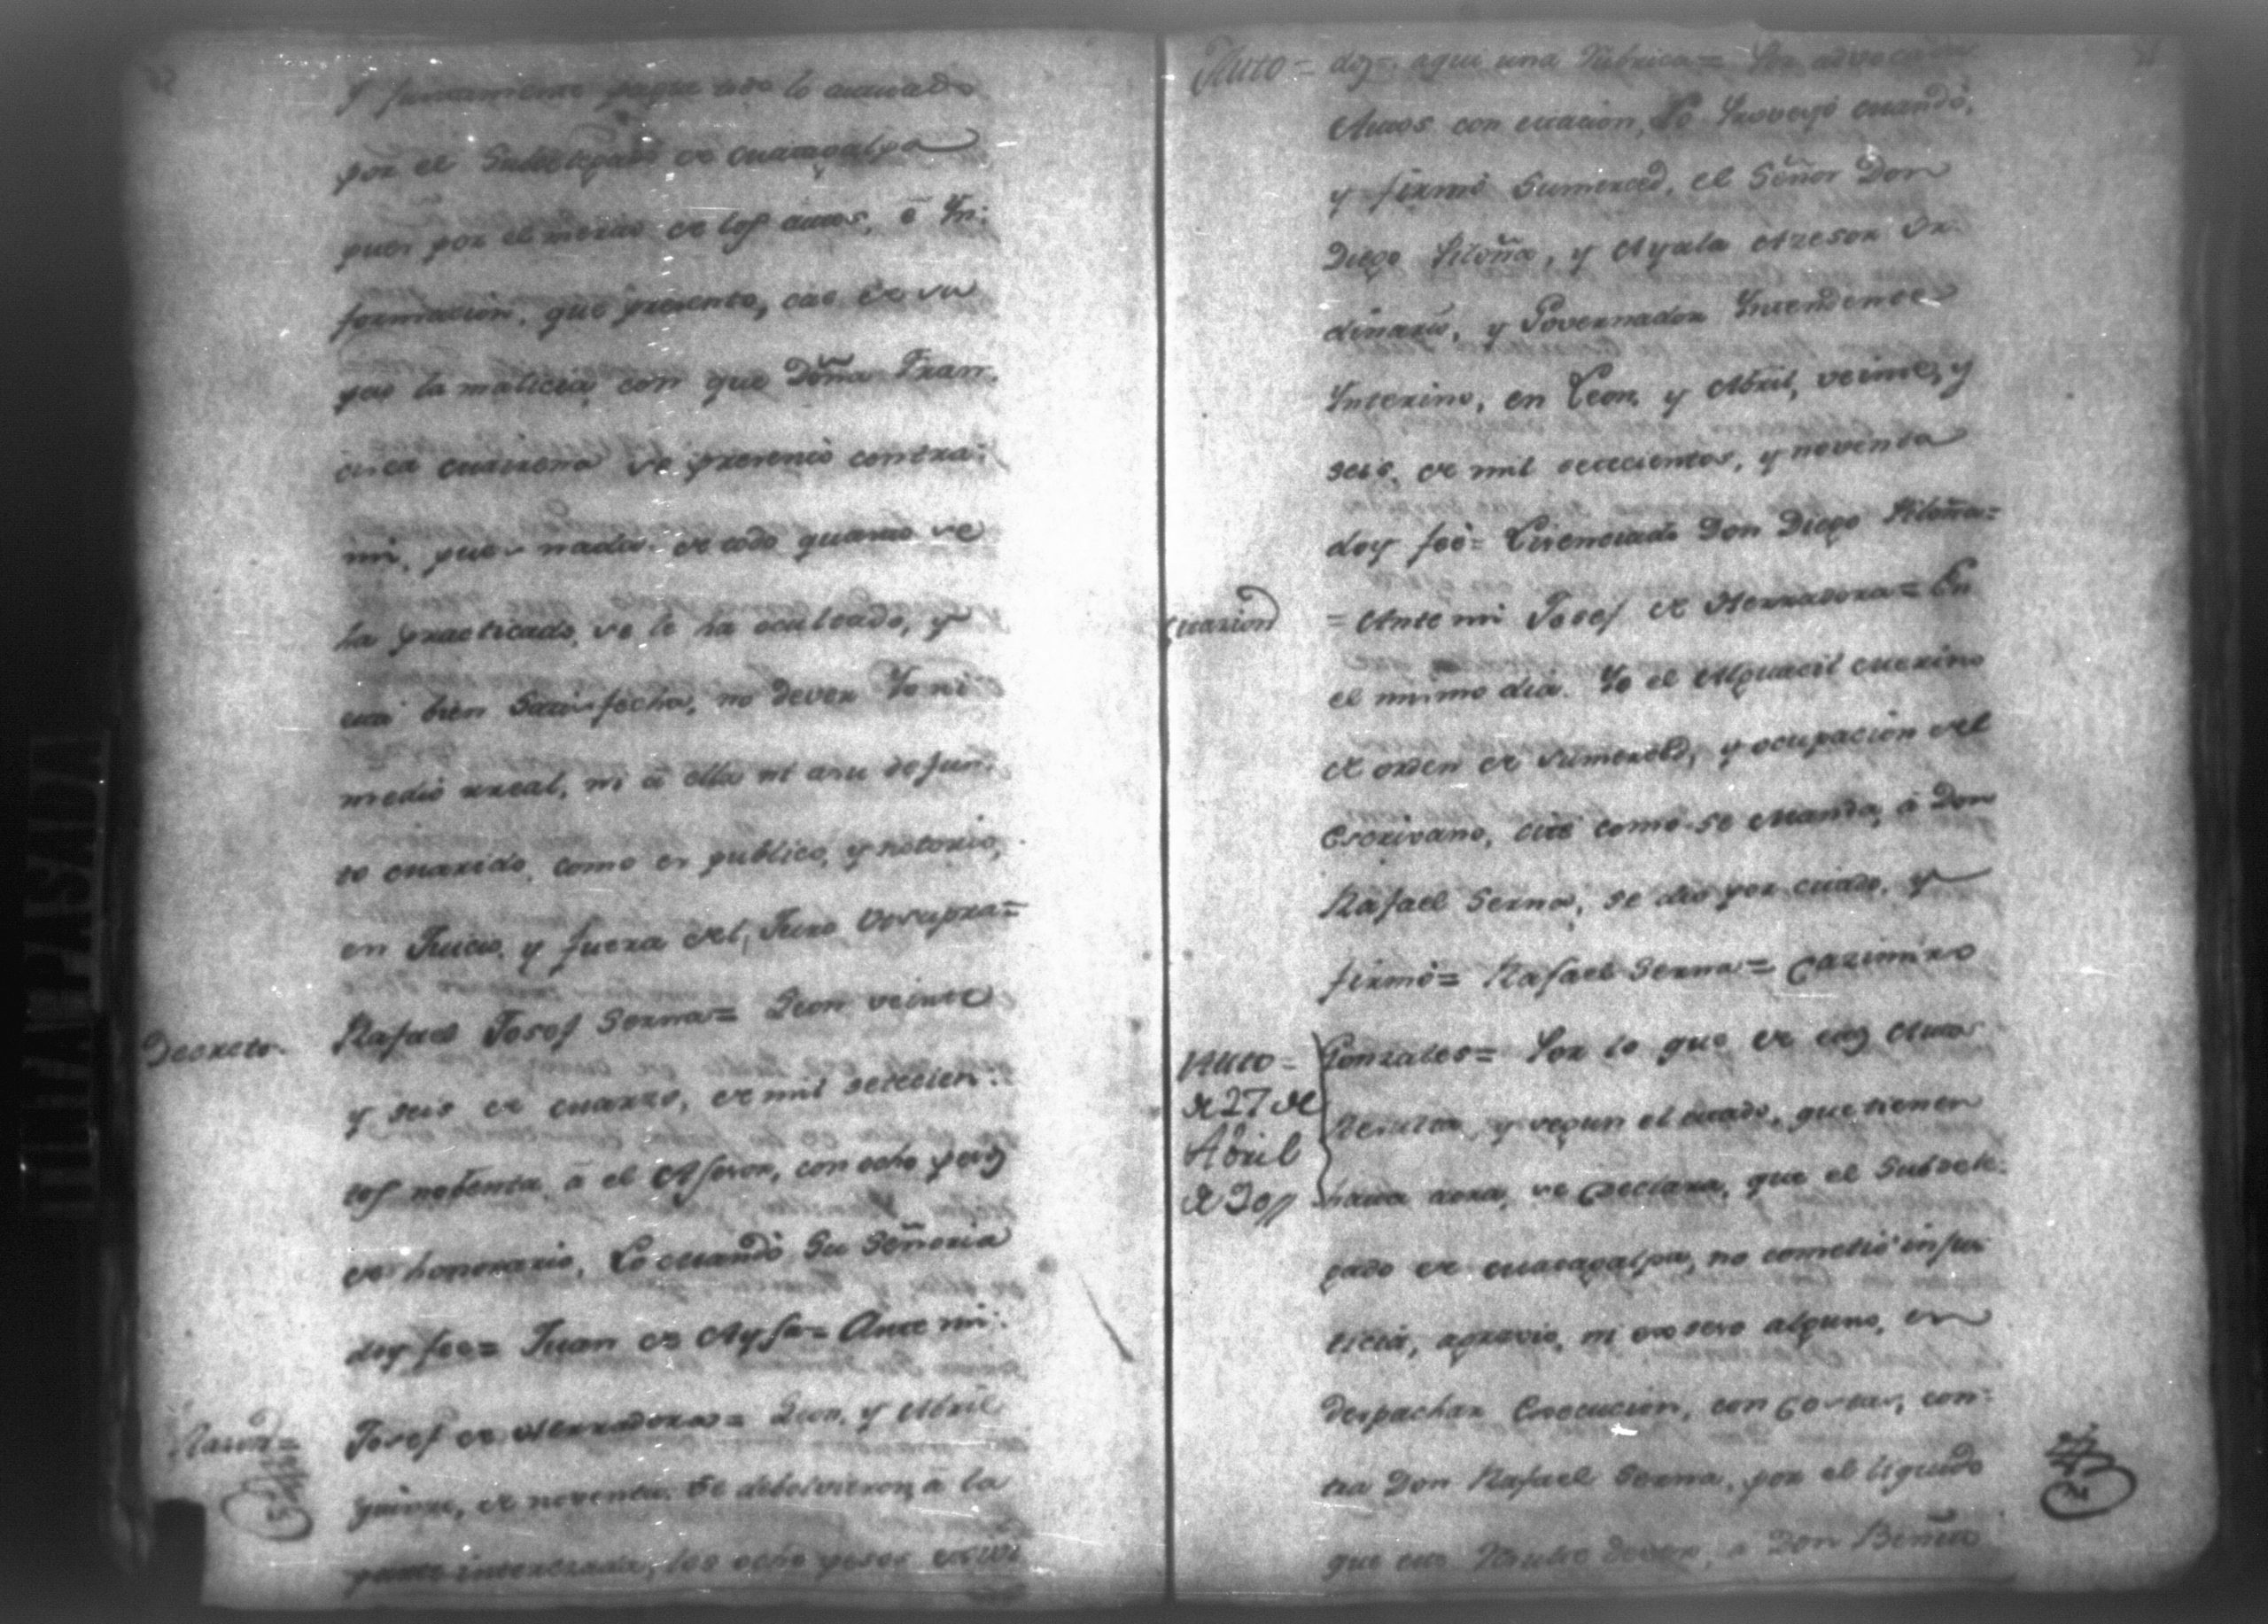 y juntamente pague todo lo actuado
por el Subdelegado de Matagalpa
pues por el merito de los autos, é Yn-
formacion, que presento, cae de su
peso la malicia con que Doña Fran-
cisca se presentó contra
mi, pues nada de todo quanto se
ha practicado, se le ha ocultado, y
está bien Satisfecha, no dever Yo ni
medio rreal, ni á ella ni a su defun-
to marido, como es publico, y notorio,
en Juicio, y fuera del, Juro Vtsupra=
Decreto. Rafael Josef Serna= Leon veinte
y seis de marzo, de mil setecien-
tos nobenta á el Asesor, con ocho pesos
de honorario, Lo mandó Su Señoria
doy fee= Juan de Ayssa= Ante mi
Razon= Josef de Herradora= Leon, y Abril
quinze, de noventa. Se debolvieron á la
parte interezada, los ocho pesos
Auto= doy= aqui una Rubrica= Por
Autos con citacion, Lo Proveyó mandó,
y firmó Sumerced, el Señor Don
Diego Piloña, y Ayala Azesor Or-
dinario, y Governador Yntendente
Ynterino, en Leon, y Abril, veinte, y
seis, de mil setecientos, y noventa
doy feé= Licenciado Don Diego Piloña=
Citazion = Ante mi Josef de Herradora= En
el mismo dia. Yo el Alguacil
de orden de Sumerced, y ocupacion del
Escrivano, cité como se Manda, á Don
Rafael Serna, se dio por citado, y
firmó= Rafael Serna= Cazimiro
Auto= Gonzales= Por lo que de estos Autos
de 27 de Resulta, y segun el estado, que tienen
Abril
de 90 hasta aora, se Declara, que el Subdele-
gado de Matagalpa, no cometió injus-
ticia, agravio, ni exseso alguno, en
Despachar Execucion, con Costas, con-
tra Don Rafael Serna, por el liquido
que este Resulto dever, a Don Benito